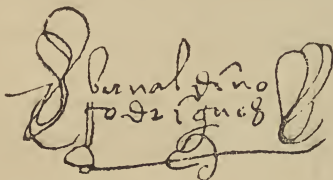 bernaldino
rodrigues